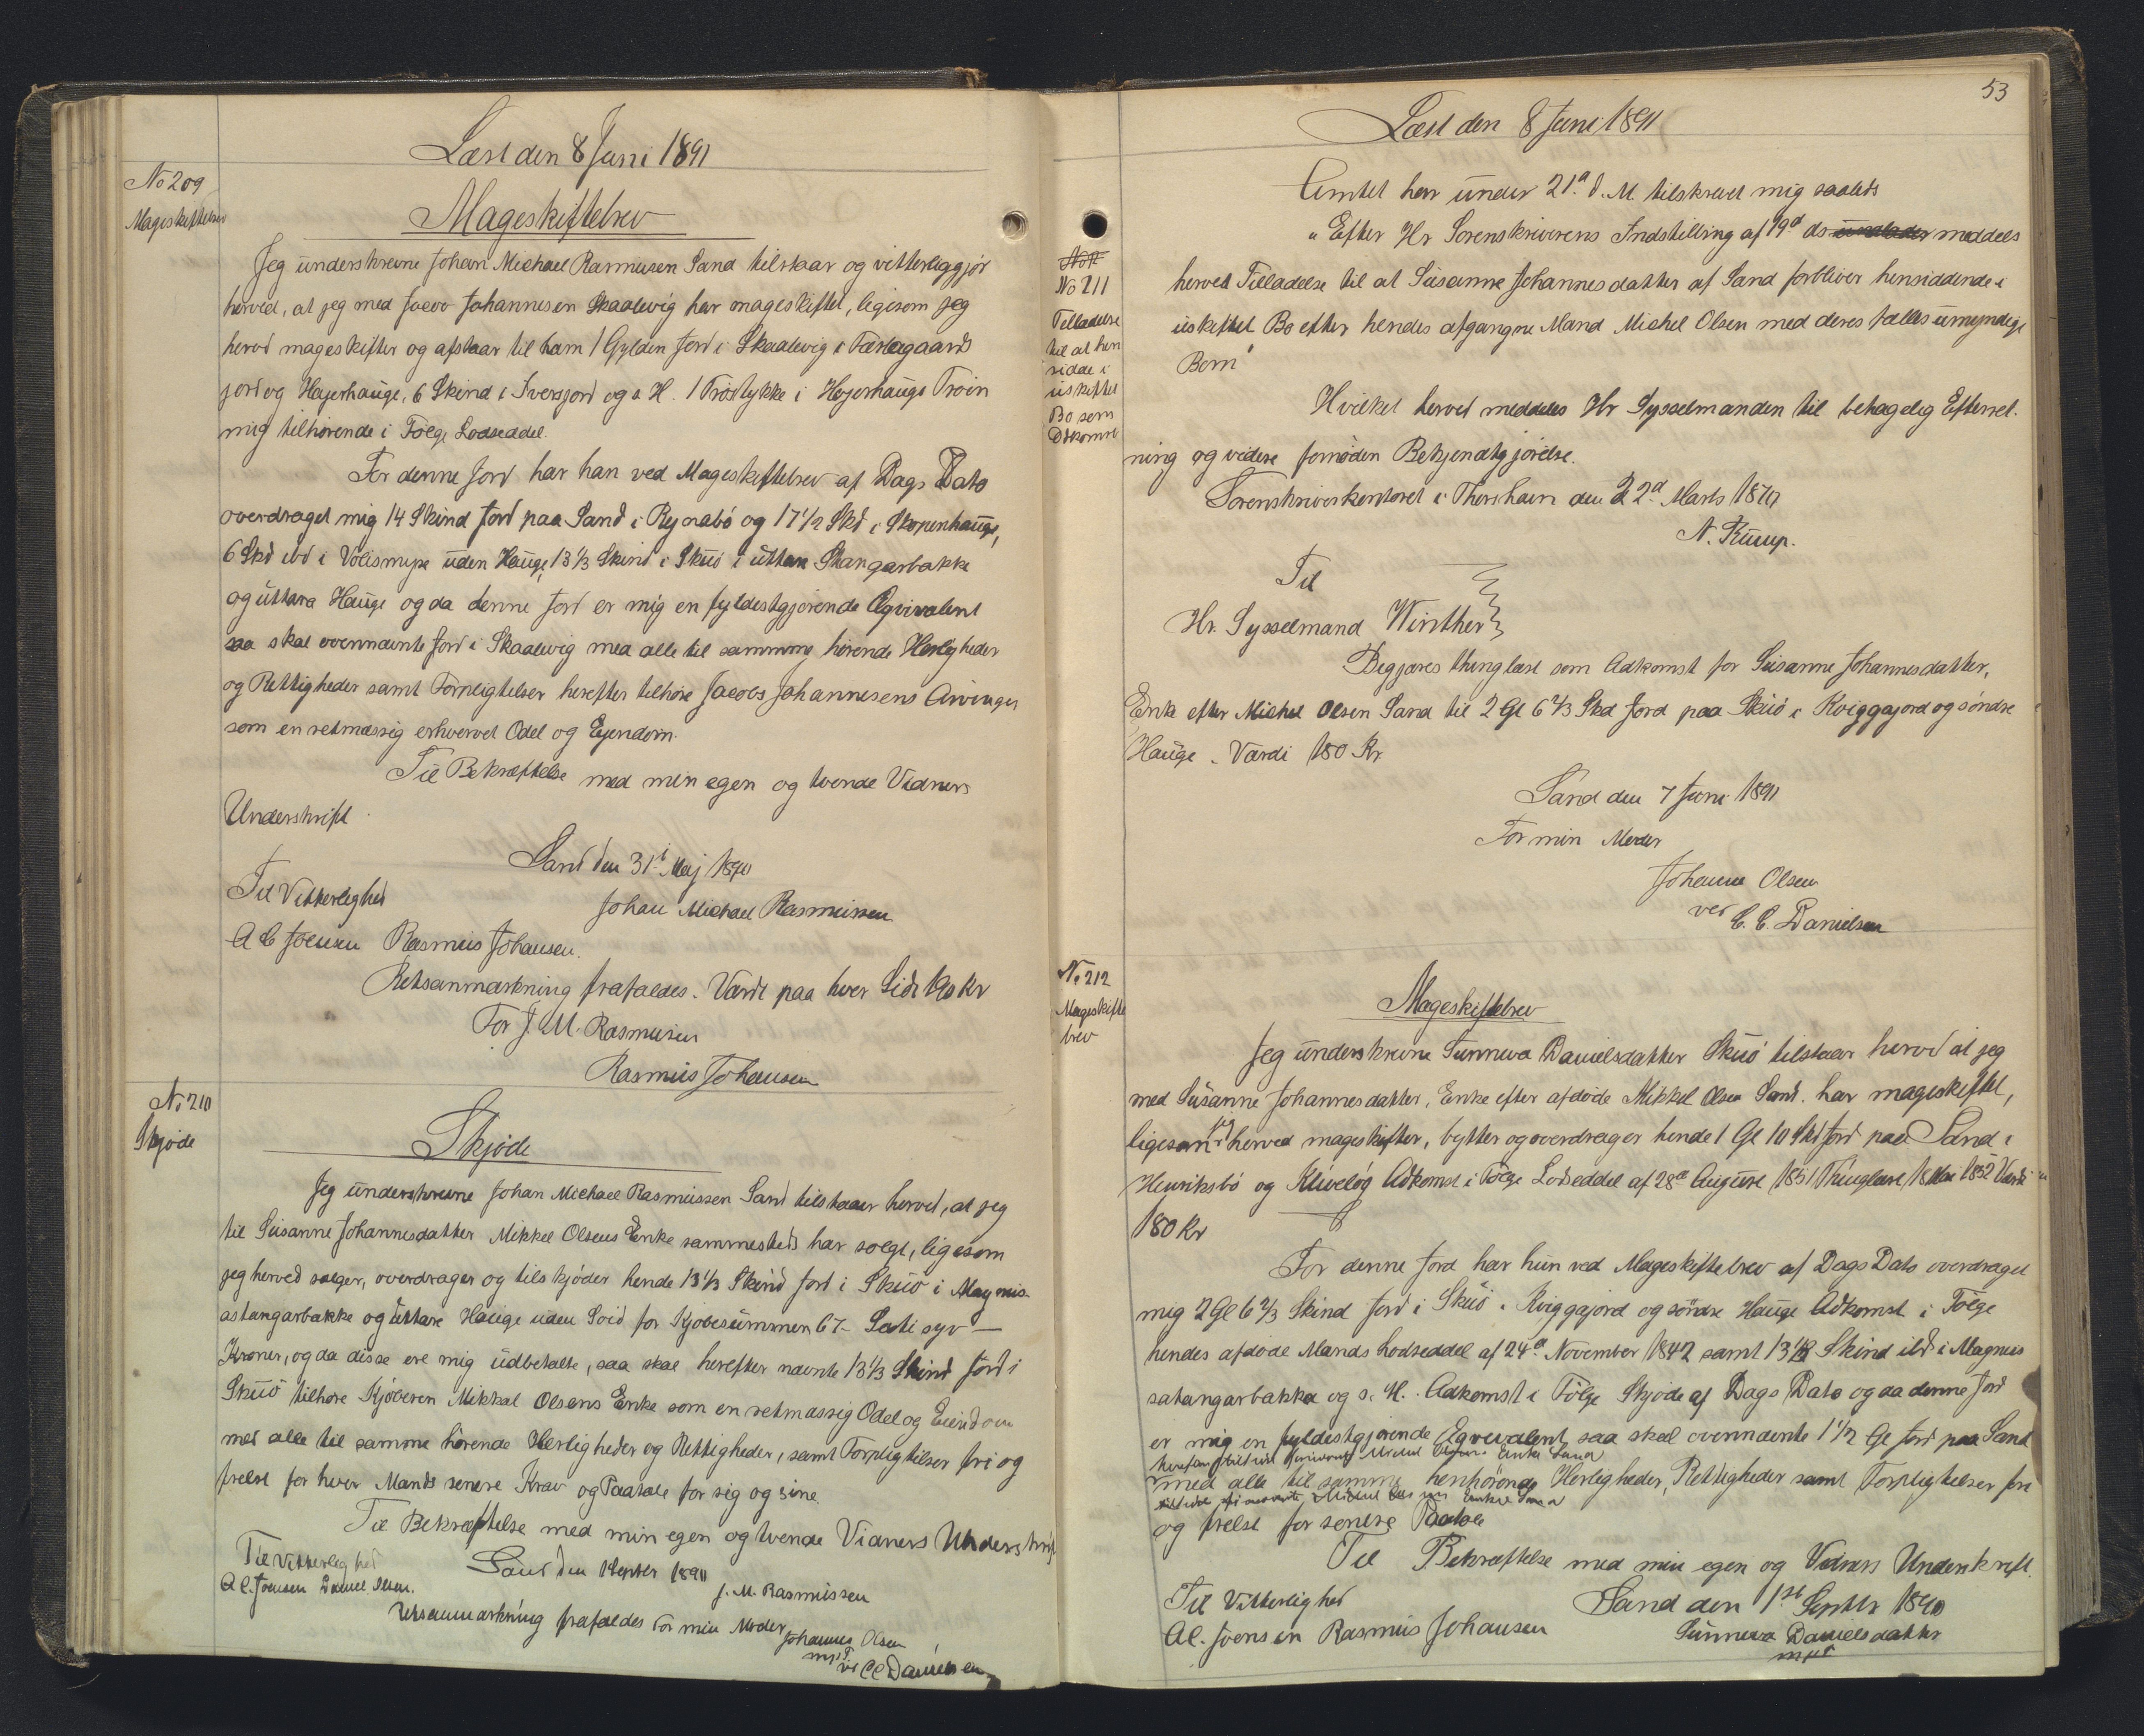 Læst den 8 Juni 1891
No 209
Mageskiftebrev
Mageskiftebrev
Jeg underskrevne Johan Michael Rasmusen Sand tilstaar og vitterliggjør
herved, at jeg med Jacob Johannesen Skaalevig har mageskiftet, ligesom jeg
herved mageskifter og afstaar til ham 1 Gylden Jord i Skaalevig i
jord og Højerhauge, 6 Skind i Iversjord og s. H. 1 Tröstykke i Højerhauge Tröin
mig tilhørende i Følge Lodseddel.
For denne Jord har han ved Mageskiftebrev af Dags Dato
overdraget mig 14 Skind Jord paa Sand i Rynabö og 17 1/2 Skd i Skopenhauge,
6 Skd ibd i uden Hauge, 13 1/3 Skind i Skuö i uttan Stangarbakke
og uttara Hauge og da denne Jord er mig en fyldestgjørende Æqvivalent
saa skal ovennævnte Jord i Skaalevig med alle til sammen hørende Herligheder
og Rettigheder samt Forpligtelser herefter tilhøre Jacob Johannesens Arvinger
som en retmæssig erhvervet Odel og Ejendom.
Til Bekræftelse med min egen og tvende Vidners
Underskrift.
Sand den 31t Maj 1890
Til Vitterlighed
Johan Michael Rasmussen
A C Joensen Rasmus Johansen.
Retsanmærkning frafaldes. Værdi paa hver Side 190 Kr
For J. M. Rasmusen
Rasmus Johansen
No 210
Skjøde
Skjøde
Jeg underskrevne Johan Michael Rasmussen Sand tilstaaer herved, at jeg
til Susanne Johannesdatter Mikkel Olsens Enke sammesteds har solgt, ligesom
jeg herved sælger, overdrager og tilskjøder hende 13 1/3 Skind Jord i Skuö i Magnus-
astangarbakke og uttare Hauge uden Soid for Kjøbesummen 67 - Sexti syv -
Kroner, og da disse ere mig udbetalte, saa skal herefter nævnte 13 1/3 Skind Jord i
Skuö tilhøre Kjøberen Mikkel Olsens Enke som en retmæssig Odel og Eiendom
med alle til samme hørende Herligheder og Rettigheder, samt Forpligtelser fri og
frelst for hver Mands senere Krav og Paatale for sig og sine.
Til Bekræftelse med min egen og tvende Vidners Underskrift
Til Vitterlighed
Sand den 1 Septbr 1890
A C. Joensen Daniel Olsen.
J. M. Rasmussen
Retsanmærkning frafaldes For min Moder
Johannes Olsen
mpS
ved C C Danielsen
53
Læst den 8 Juni 1891
No 211
Tilladelse
til at hen
sidde i
uskiftet
Bo som
Adkomst
Amtet har under 21.d d. M. tilskrevet mig saaledes
"Efter Hr Sorenskriverens Indstilling af 19d ds meddeles
herved Tilladelse til at Susanne Johannesdatter af Sand forbliver hensiddende i
uskiftet Bo efter hendes afgangne Mand Michel Olsen med deres fælles umyndige
Børn"
Hvilket herved meddeles Hr Sysselmanden til behagelig Efterret-
ning og videre fornøden Bekjendtgjørelse.
Sorenskriverkontoret i Thorshavn den 22d Marts 1870
Til
Hr. Sysselmand Winther
Begjæres thinglæst som Adkomst for Susanne Johannesdatter,
Enke efter Michel Olsen Sand til 2 Gl 6 2/3 Skd Jord paa Skuö i Kviggajord og söndre
Hauge. Værdi 180 Kr.
Sand den 7 Juni 1891
For min Moder
Johannes Olsen
ved C. C. Danielsen
No 212
Mageskifte
brev
Mageskiftebrev
Jeg underskrevne Sunneva Danielsdatter Skuö tilstaar herved at jeg
med Susanne Johannesdatter, Enke efter afdøde Mikkel Olsen Sand. har mageskiftet,
ligesom jeg herved mageskifter, bytter og overdrager hende 1 Gl 10 Skd Jord paa Sand i
Henriksbö og Adkomst i Følge Lodseddel af 28de August 1851 Thinglæst 18 Mai 1852 Værdi
180 Kr
For denne Jord har hun ved Mageskiftebrev af Dags Dato overdraget
mig 2 Gl 6 2/3 Skind Jord i Skuö i Kviggajord og söndre Hauge Adkomst i Følge
hendes afdøde Mands Lodseddel af 24d November 1842 samt 13 1/3 Skind ibd i Magnus
satangarbakka og s. H. Adkomst i Følge Skjøde af Dags Dato og da denne Jord
er mig en fyldestgjørende Egvivalent, saa skal ovennævnte 1 1/2 Gl Jord paa Sand
med alle til samme henhørende Herligheder, Rettigheder samt Forpligtelser fri
og frelst for senere Paatale
Til Bekræftelse med min egen og Vidners Underskrift.
Til Vitterlighed
Sand den 1st Septbr 1890
A C. Joensen Rasmus Johansen
Sunneva Danielsdatter
mpS